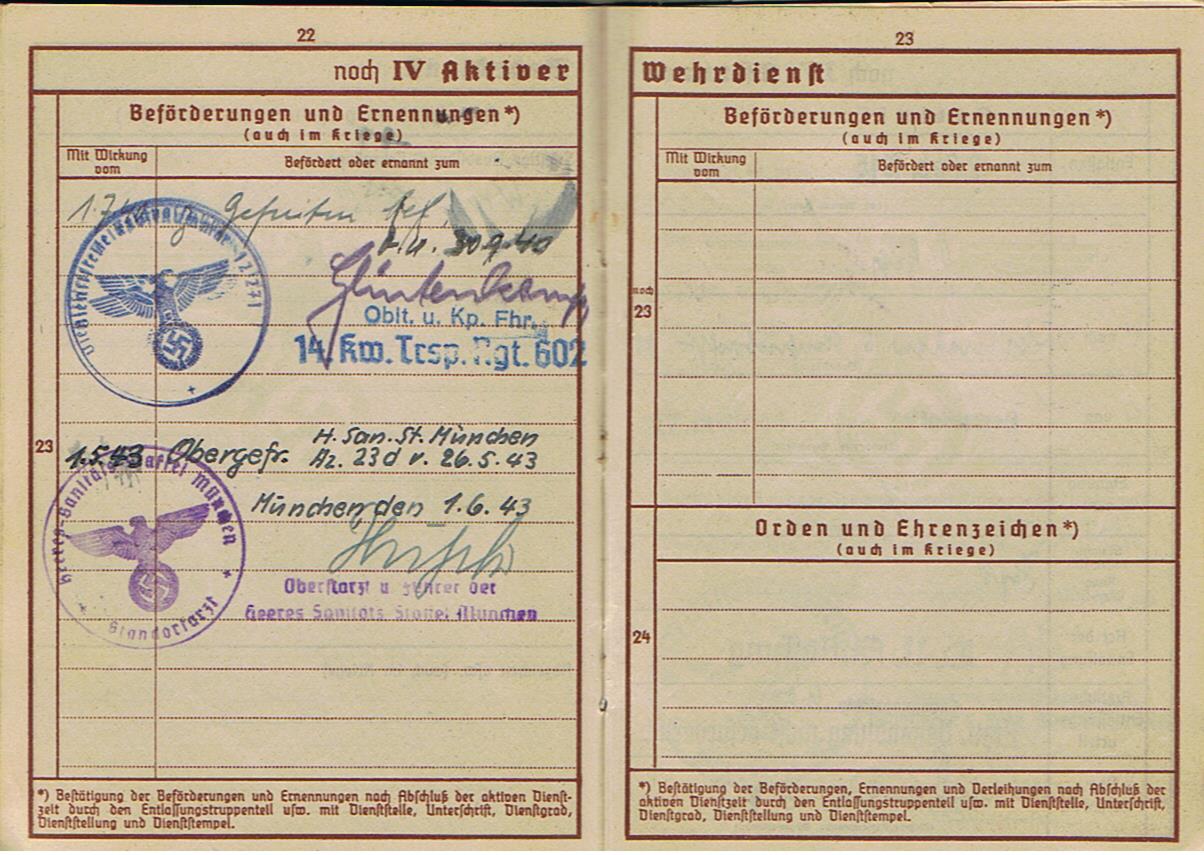 22
noch IV Aktiver
Beförderungen und Ernennungen*)
(auch im Kriege)
Mit Wirkung
vom
Befördert oder ernannt zum
Gefreiten bef.
30.9.40
Oblt. u. Kp. Fhr.
14. Kw. Trsp. Rgt. 602
23
1.5.43 Obergefr. H. San. St. München
Az. 23d v. 26.5.43
München den 1.6.43
Heeres-Sanitäts-Staffel München
Standortarzt
Oberstarzt u. Führer der
Heeres Sanitäts Staffel München
*) Bestätigung der Beförderungen und Ernennungen nach Abschluß der aktiven Dienst-
zeit durch den Entlassungstruppenteil usw. mit Dienststelle, Unterschrift, Dienstgrad,
Dienststellung und Dienststempel.
23
Wehrdienst
Beförderungen und Ernennungen*)
(auch im Kriege)
Mit Wirkung
vom
Befördert oder ernannt zum
noch
23
Orden und Ehrenzeichen*)
(auch im Kriege)
24
*) Bestätigung der Beförderungen, Ernennungen und Verleihungen nach Abschluß der
aktiven Dienstzeit durch den Entlassungstruppenteil usw. mit Dienststelle, Unterschrift,
Dienstgrad, Dienststellung und Dienststempel.